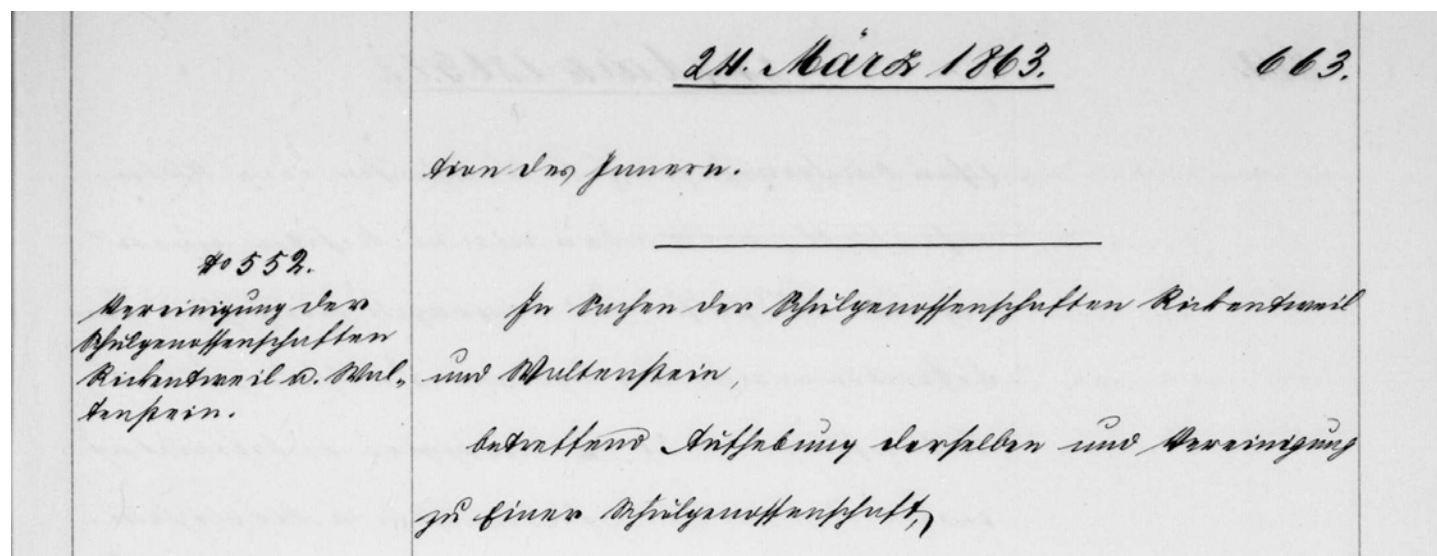 24. März 1863.
663.
tion des Innern.
No 552.
Vereinigung der
Schulgenossenschaften
Ricketweil u. Wal-
tenstein.
In Sachen der Schulgenossenschaften Ricketweil
und Waltenstein,
betreffend Aufhebung derselben und Vereinigung
zu Einer Schulgenossenschaft,